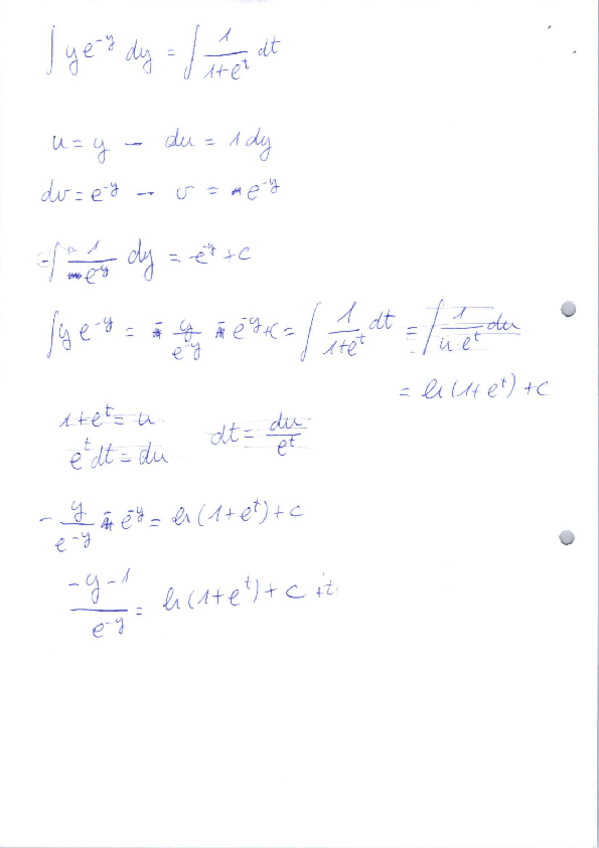 ∫ y e^{-y} dy = ∫ 1/(1+e^t) dt
u = y – du = 1dy
dv = e^{-y} – v = -e^{-y}
-∫ 1/e^y dy = e^{-y} + c
∫ y e^{-y} = - y/e^{-y} - e^{-y} + c = ∫ 1/(1+e^t) dt = ∫ 1/(u·e^t) du
= ln(1+e^t) + c
1+e^t = u
dt = du/e^t
e^t dt = du
- y/e^{-y} - e^{-y} = ln(1+e^t) + c
(-y-1)/e^{-y} = ln(1+e^t) + c + t